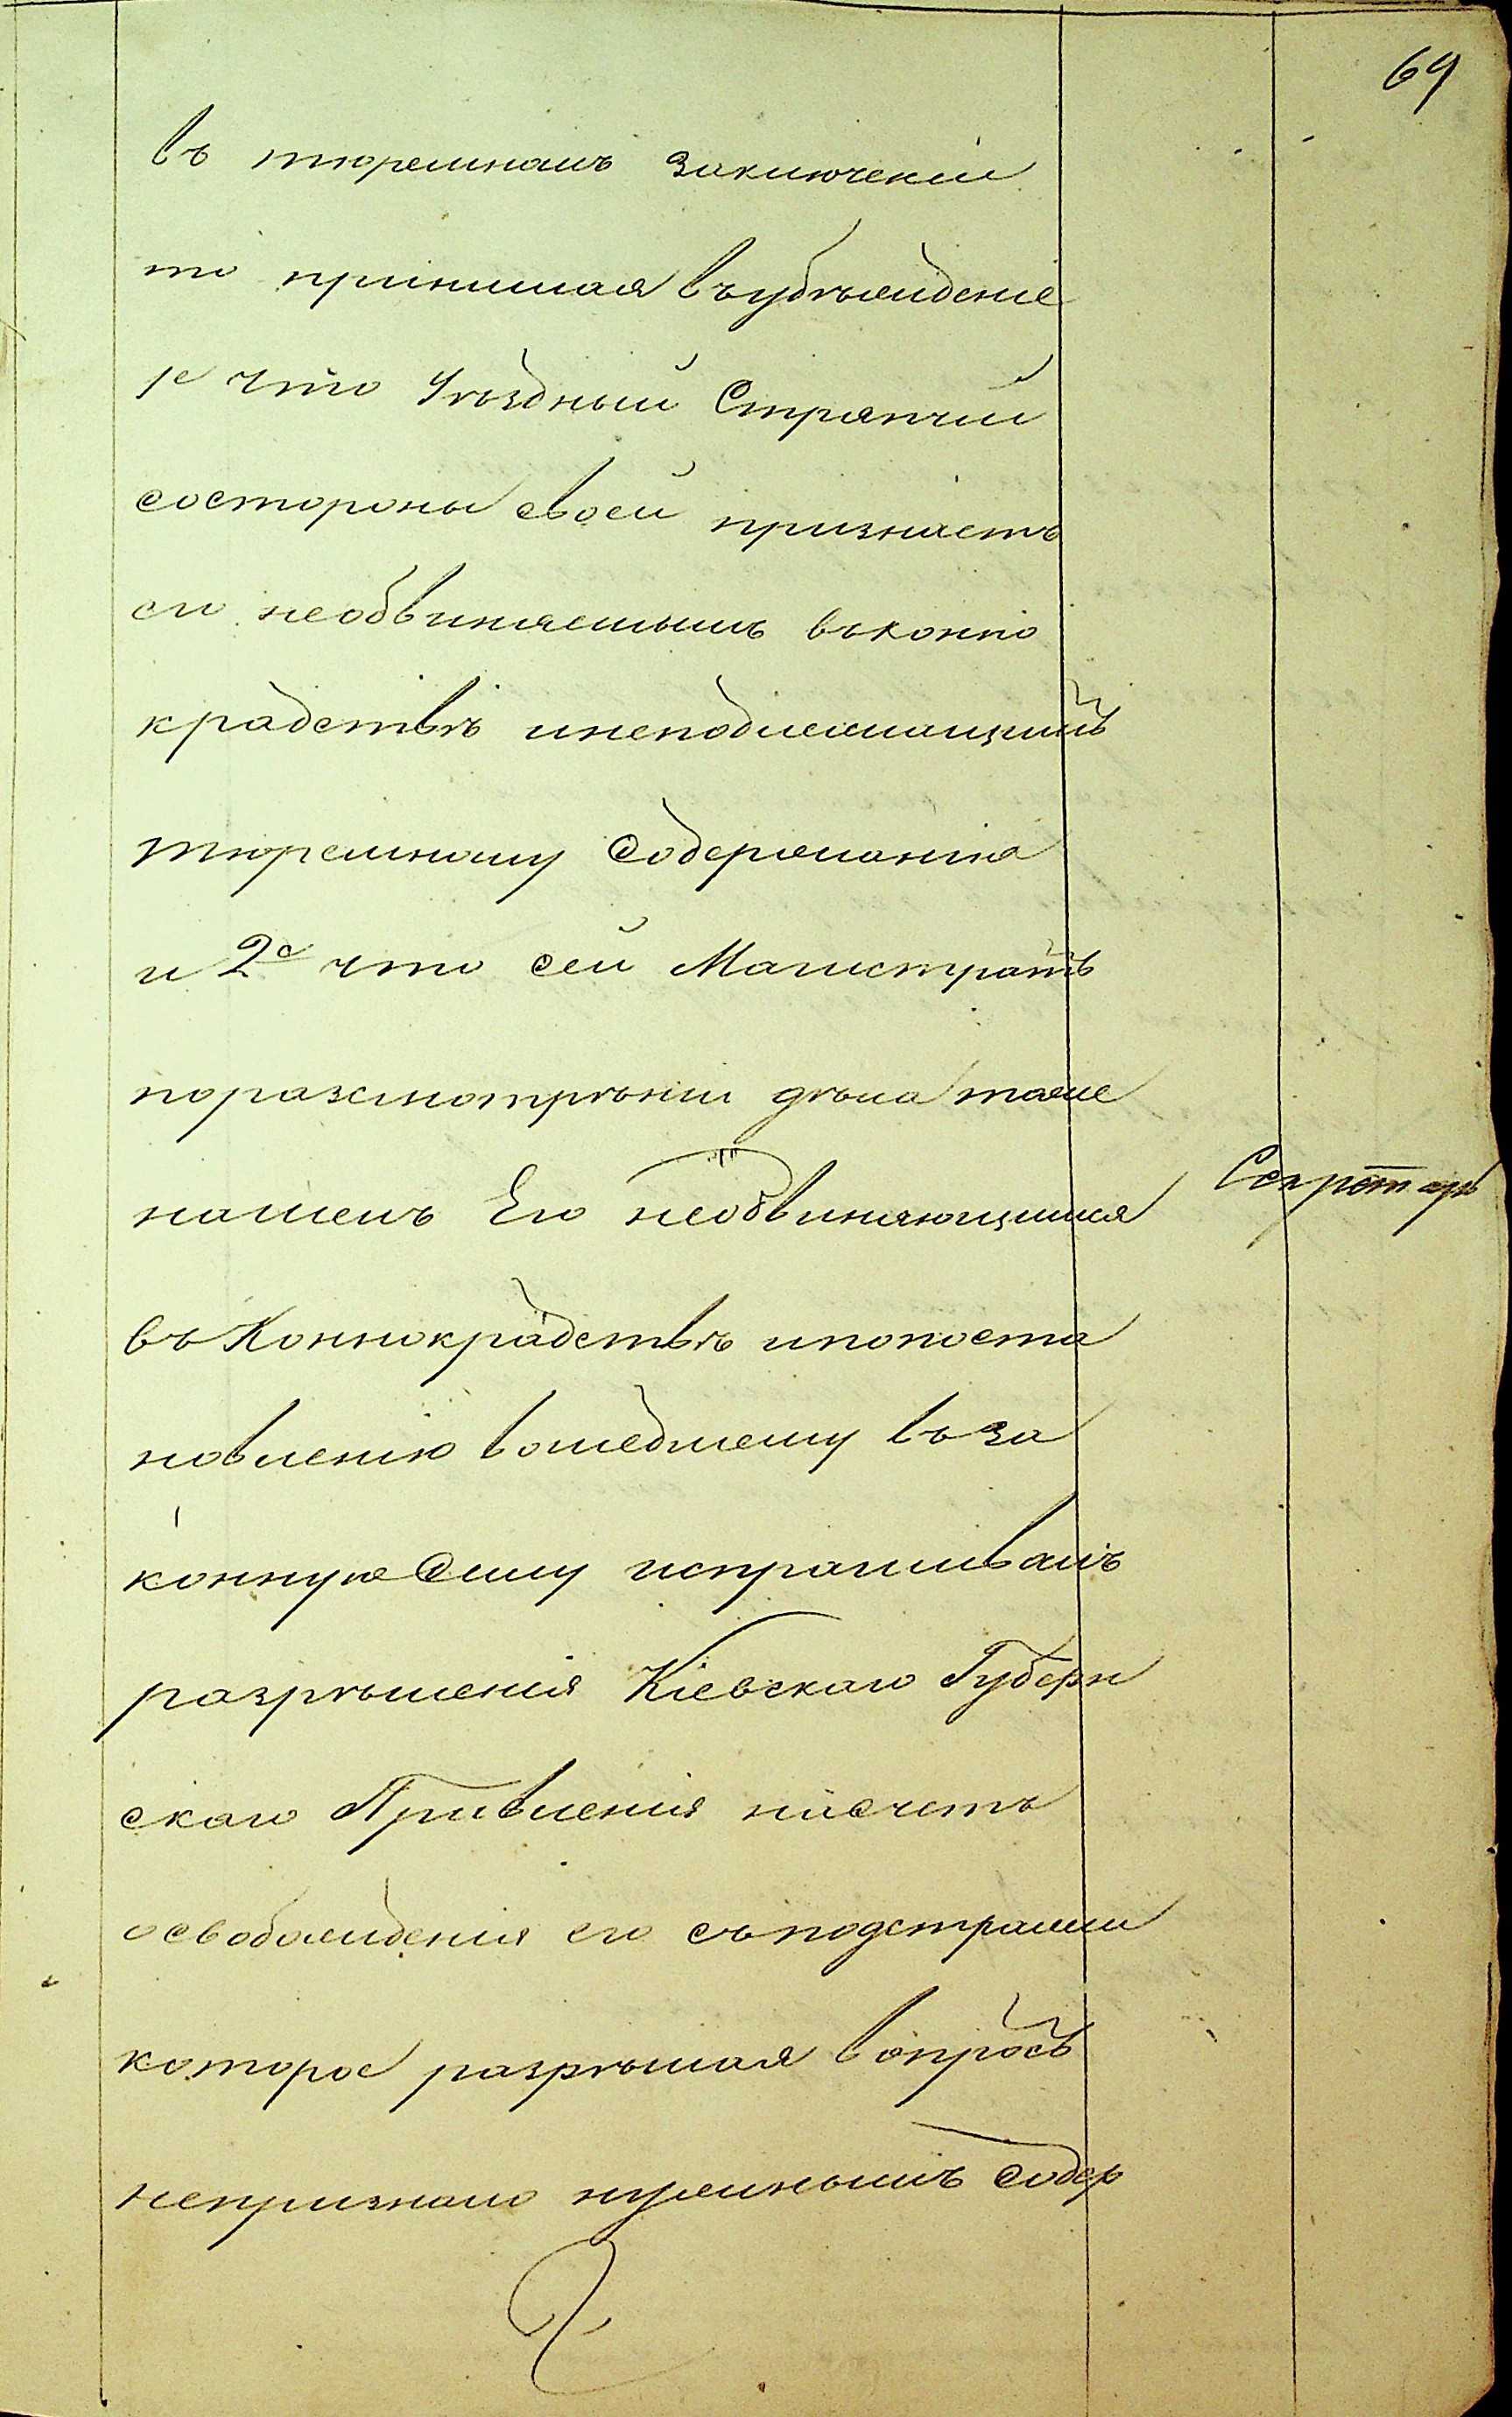 69
въ тюремномъ заключеніи
то принимая въубѣжденіе
1е что Уѣздный Стряпчій
состороны своей признаетъ
его необвиняемымъ въконно
крадствѣ инеподлежащимъ
тюремному Содержанію
и 2е что сей Магистратъ
поразсмотрѣніи дѣла також
нашелъ Его необвиняющимся
въ Конокрадствѣ ипопоста
новленію вошедшему въза
конную Силу испрашивалъ
разрѣшенія Кіевскаго Губерн
скаго Правленія насчетъ
освобожденія его съподстражи
которое разрѣшая вопросъ
непризнало нужнымъ содер
Секретарь